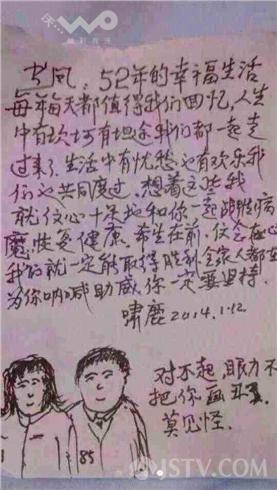 书凤：52年的幸福生活
每年每天都值得我们回忆，人生
中有坎坷有坦途我们都一起走
过来了生活中有忧愁也有欢乐我
们也共同度过。想着这些我
就信心十足地和你一起战胜病
魔，恢复健康。希望在前，信念在心
我们就一定能取得胜利全家人都在
为你呐喊助威你一定要坚持。
啸鹿 2014.1.12
85
对不起 眼力不
把你画丑了
莫见怪。
JSTV.COM